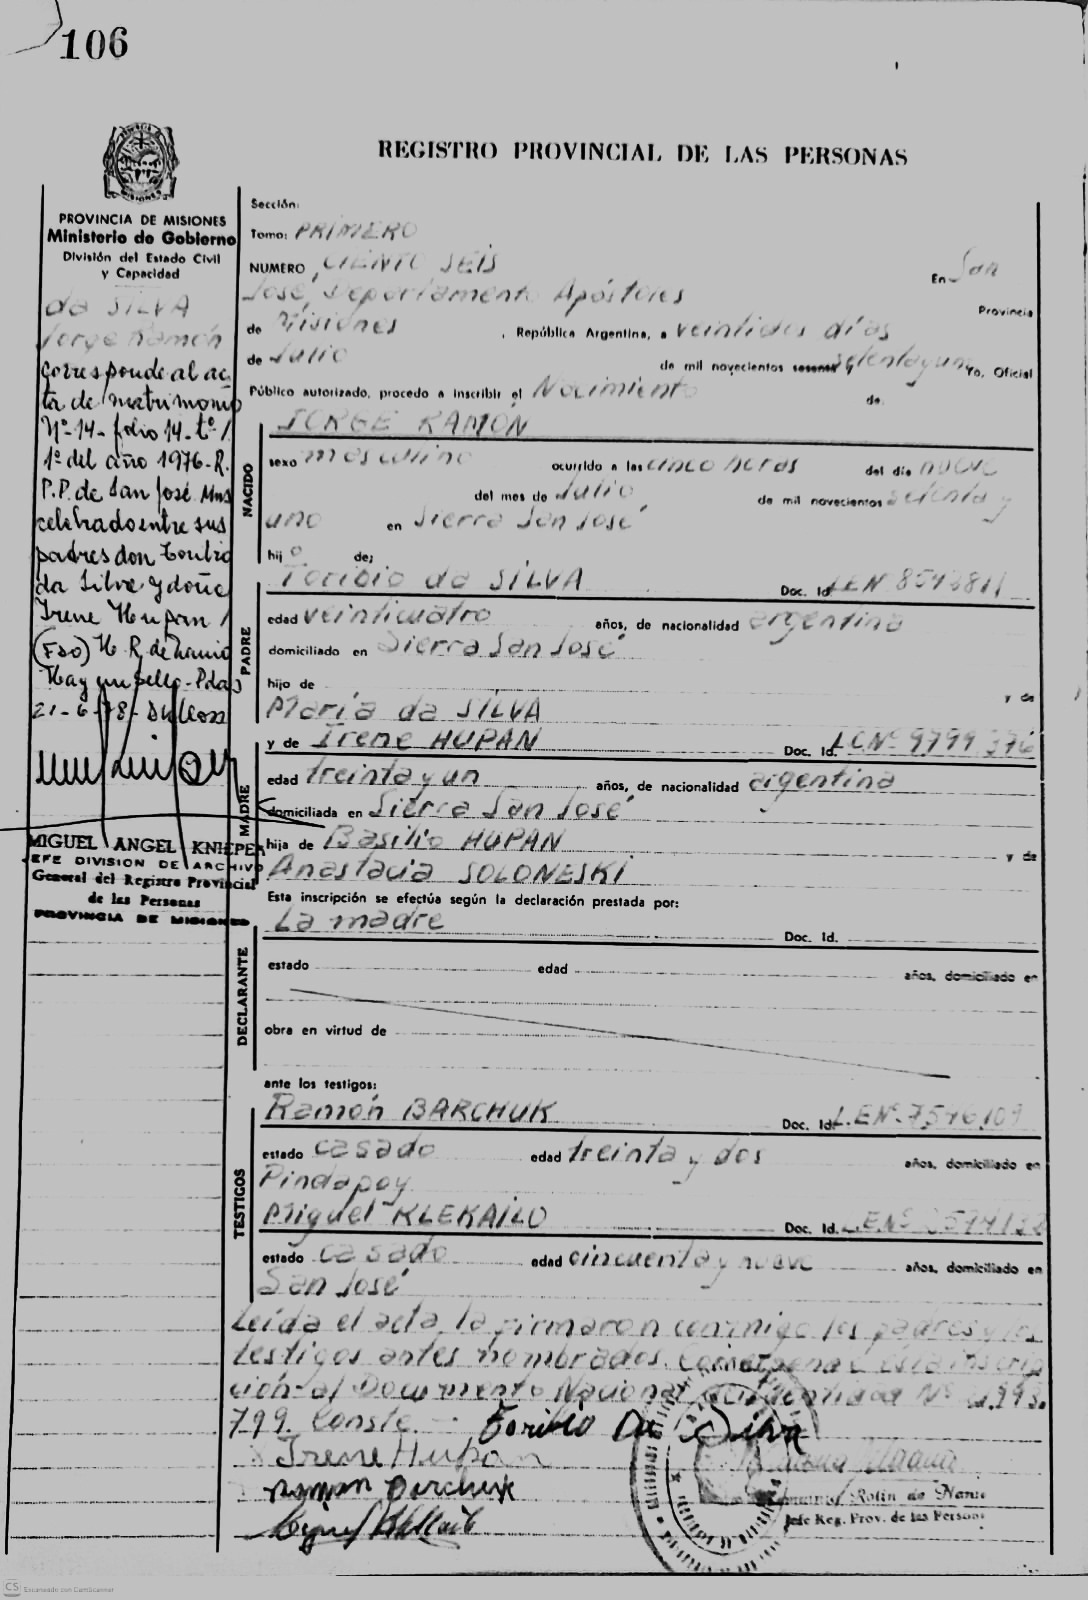 106
REGISTRO PROVINCIAL DE LAS PERSONAS
PROVINCIA DE MISIONES
Ministerio de Gobierno
División del Estado Civil
y Capacidad
da SILVA
Jorge Ramón
corresponde al ac
ta de matrimonio
Nº 14 - folio 14 - tº 1
1º del año 1976 - R.
P.P. de San José Mns
celebrado entre sus
padres don Toribio
da Silva y doña
Irene Hupan
(Fdo) H. R. de
Hay un sello - Pdas
21-6-78 -
MIGUEL ANGEL KNIEPER
JEFE DIVISION DE ARCHIVO
General del Registro Provincial
de las Personas
PROVINCIA DE MISIONES
Sección:
Tomo: PRIMERO
NUMERO CIENTO SEIS En San
José, Departamento Apóstoles Provincia
de Misiones, República Argentina, a veintidos días
de Julio de mil novecientos sesenta y setentayuno Yo, Oficial
Público autorizado, procedo a inscribir el Nacimiento de:
JORGE RAMÓN
NACIDO
sexo masculino ocurrido a las cinco horas del día nueve
del mes de Julio de mil novecientos setenta y
uno en Sierra San José
hijo de:
Toribio da SILVA Doc. Id. L.EN. 8542811
PADRE
edad veinticuatro años, de nacionalidad argentina
domiciliado en Sierra San José
hijo de y de
María da SILVA
y de Irene HUPAN Doc. Id. L.C.Nº 9799376
MADRE
edad treinta y un años, de nacionalidad argentina
domiciliada en Sierra San José
hija de Basilio HUPAN y de
Anastacia SOLONESKI
Esta inscripción se efectúa según la declaración prestada por:
La madre Doc. Id.
DECLARANTE
estado edad años, domiciliado en
obra en virtud de
ante los testigos:
Ramón BARCHUK Doc. Id. L.ENº 7.546.109
TESTIGOS
estado casado edad treinta y dos años, domiciliado en
Pindapoy
Miguel KLEKAILO Doc. Id. L.E.Nº
estado casado edad cincuenta y nueve años, domiciliado en
San José
Leída el acta, la firmaron conmigo los padres y los
testigos antes nombrados. Corresponde esta inscrip
ción al Documento Nacional de Identidad Nº
799. Conste. - Toribio Da Silva
Irene Hupan
Ramon Barchuk
Rolin de
Jefe Reg. Prov. de las Personas
CS Escaneado con CamScanner